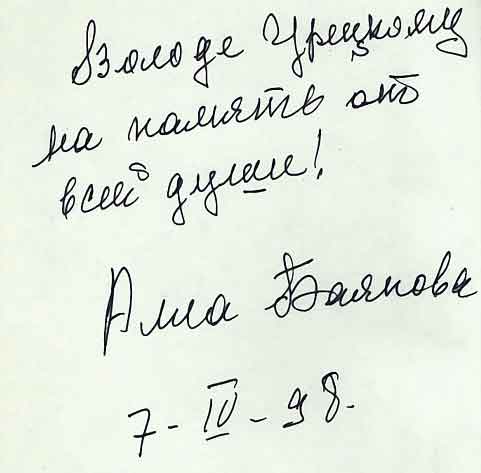 Володе Урецкому
на память от
всей души!
Алла Баянова
7-IV-98.